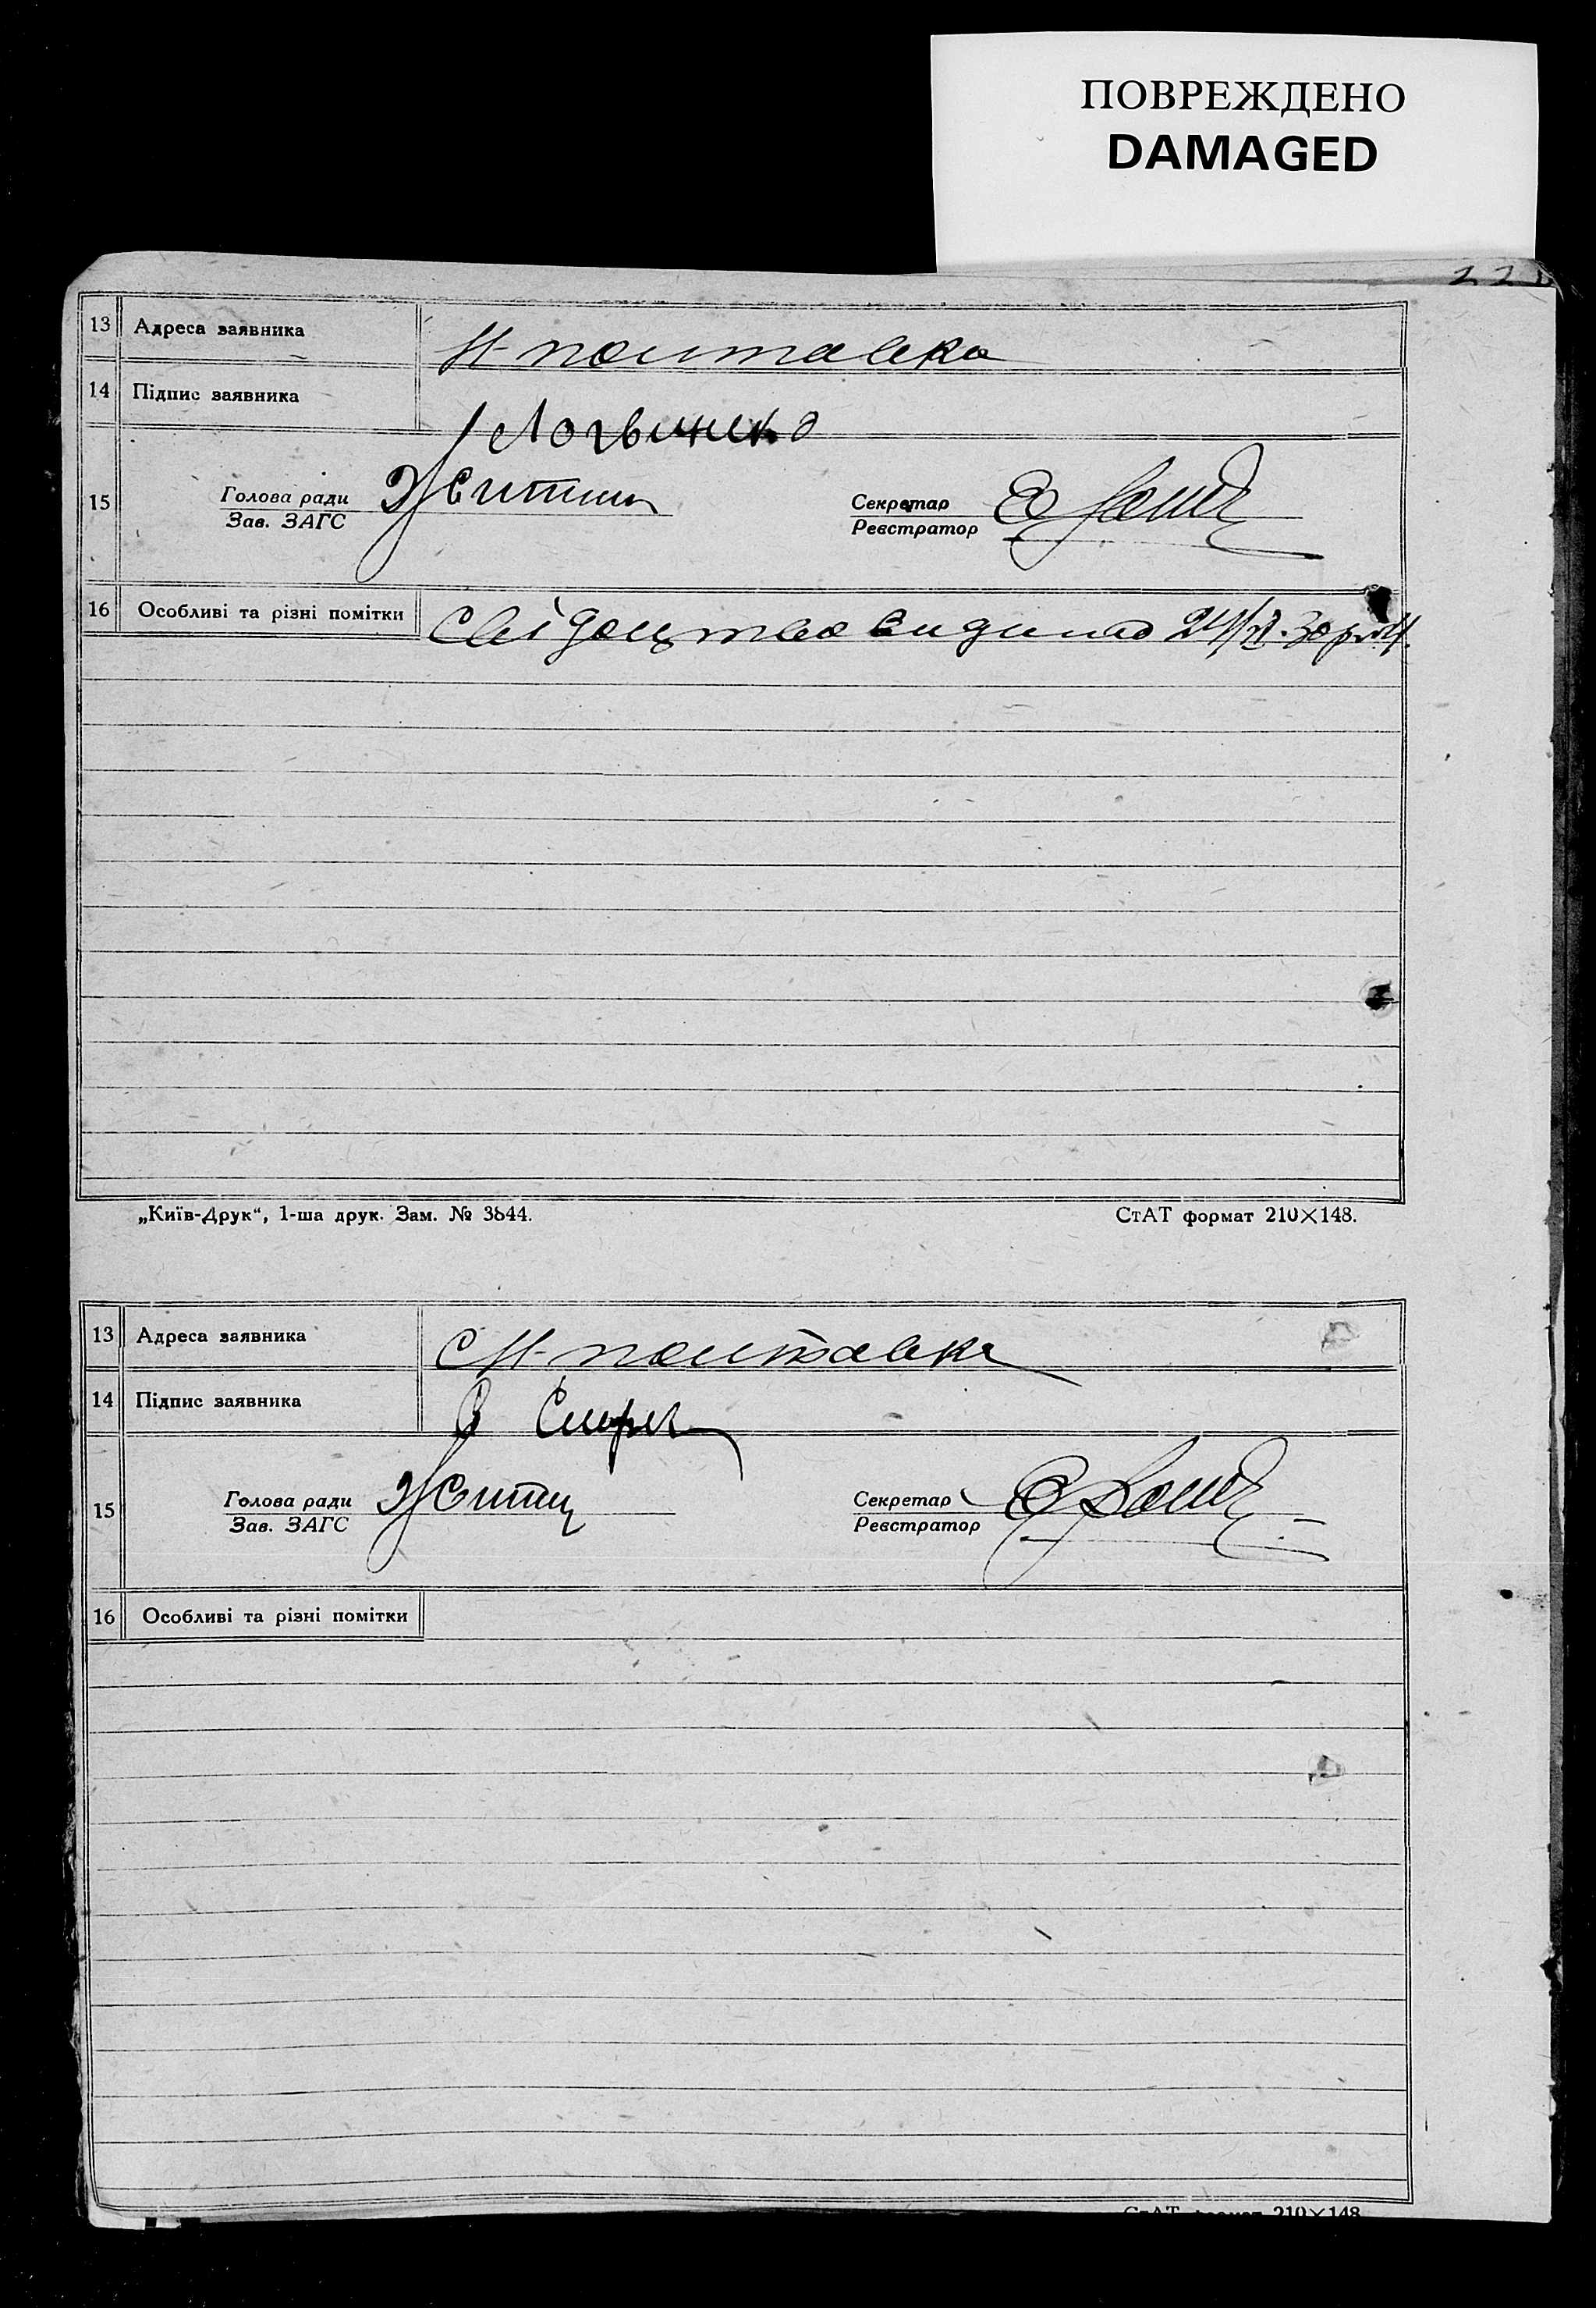 ПОВРЕЖДЕНО
DAMAGED
13 Адреса заявника Н-полтавка
14 Підпис заявника Логвиненко
15 Голова ради Секретар
Зав. ЗАГС Реєстратор
16 Особливі та різні помітки Свідоцтво видано
„Київ-Друк“, 1-ша друк. Зам. № 3844. СтАТ формат 210×148.
13 Адреса заявника С Н-полтавка
14 Підпис заявника
15 Голова ради Секретар
Зав. ЗАГС Реєстратор
16 Особливі та різні помітки
СтАТ формат 210×148